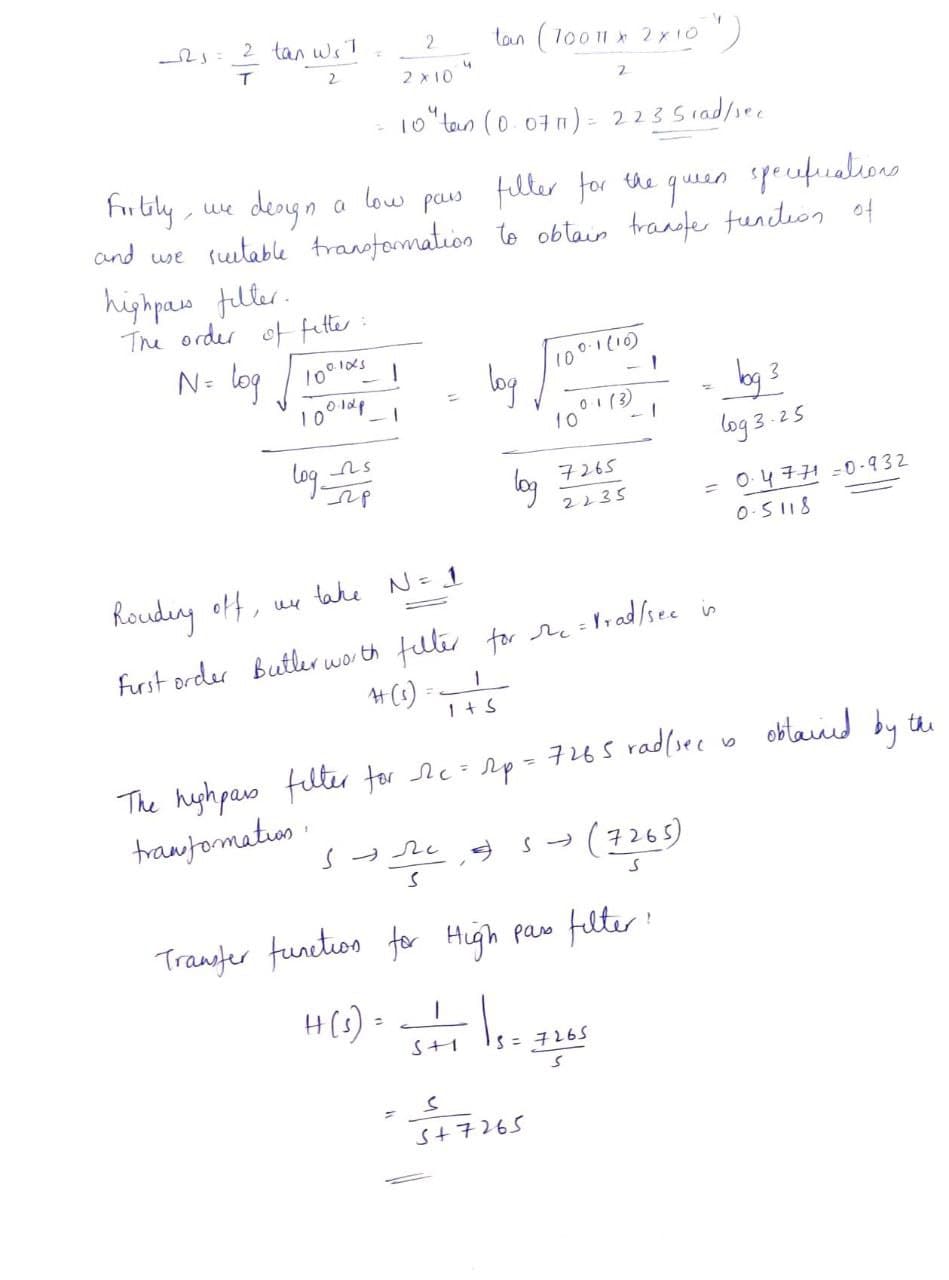 Ωs = 2/T tan WsT/2 = 2/(2×10^-4) tan (700π × 2×10^-4)/2
= 10^4 tan (0.07π) = 2235 rad/sec
Firtily, we design a low pass filter for the given specifications
and use suitable transformation to obtain transfer function of
highpass filter.
The order of filter :
N = log √((10^0.1αs − 1)/(10^0.1αp − 1)) / log Ωs/Ωp = log √((10^0.1(10) − 1)/(10^0.1(3) − 1)) / log 7265/2235 = log 3 / log 3.25
= 0.4771/0.5118 = 0.932
Rouding off, we take N = 1
First order Butterworth filter for Ωc = 1rad/sec is
H(s) = 1/(1 + s)
The highpass filter for Ωc = Ωp = 7265 rad/sec is obtained by the
transformation.
s → Ωc/s, ⇒ s → (7265)/s
Transfer function for High pass filter:
H(s) = 1/(s+1) | s = 7265/s
= s/(s + 7265)